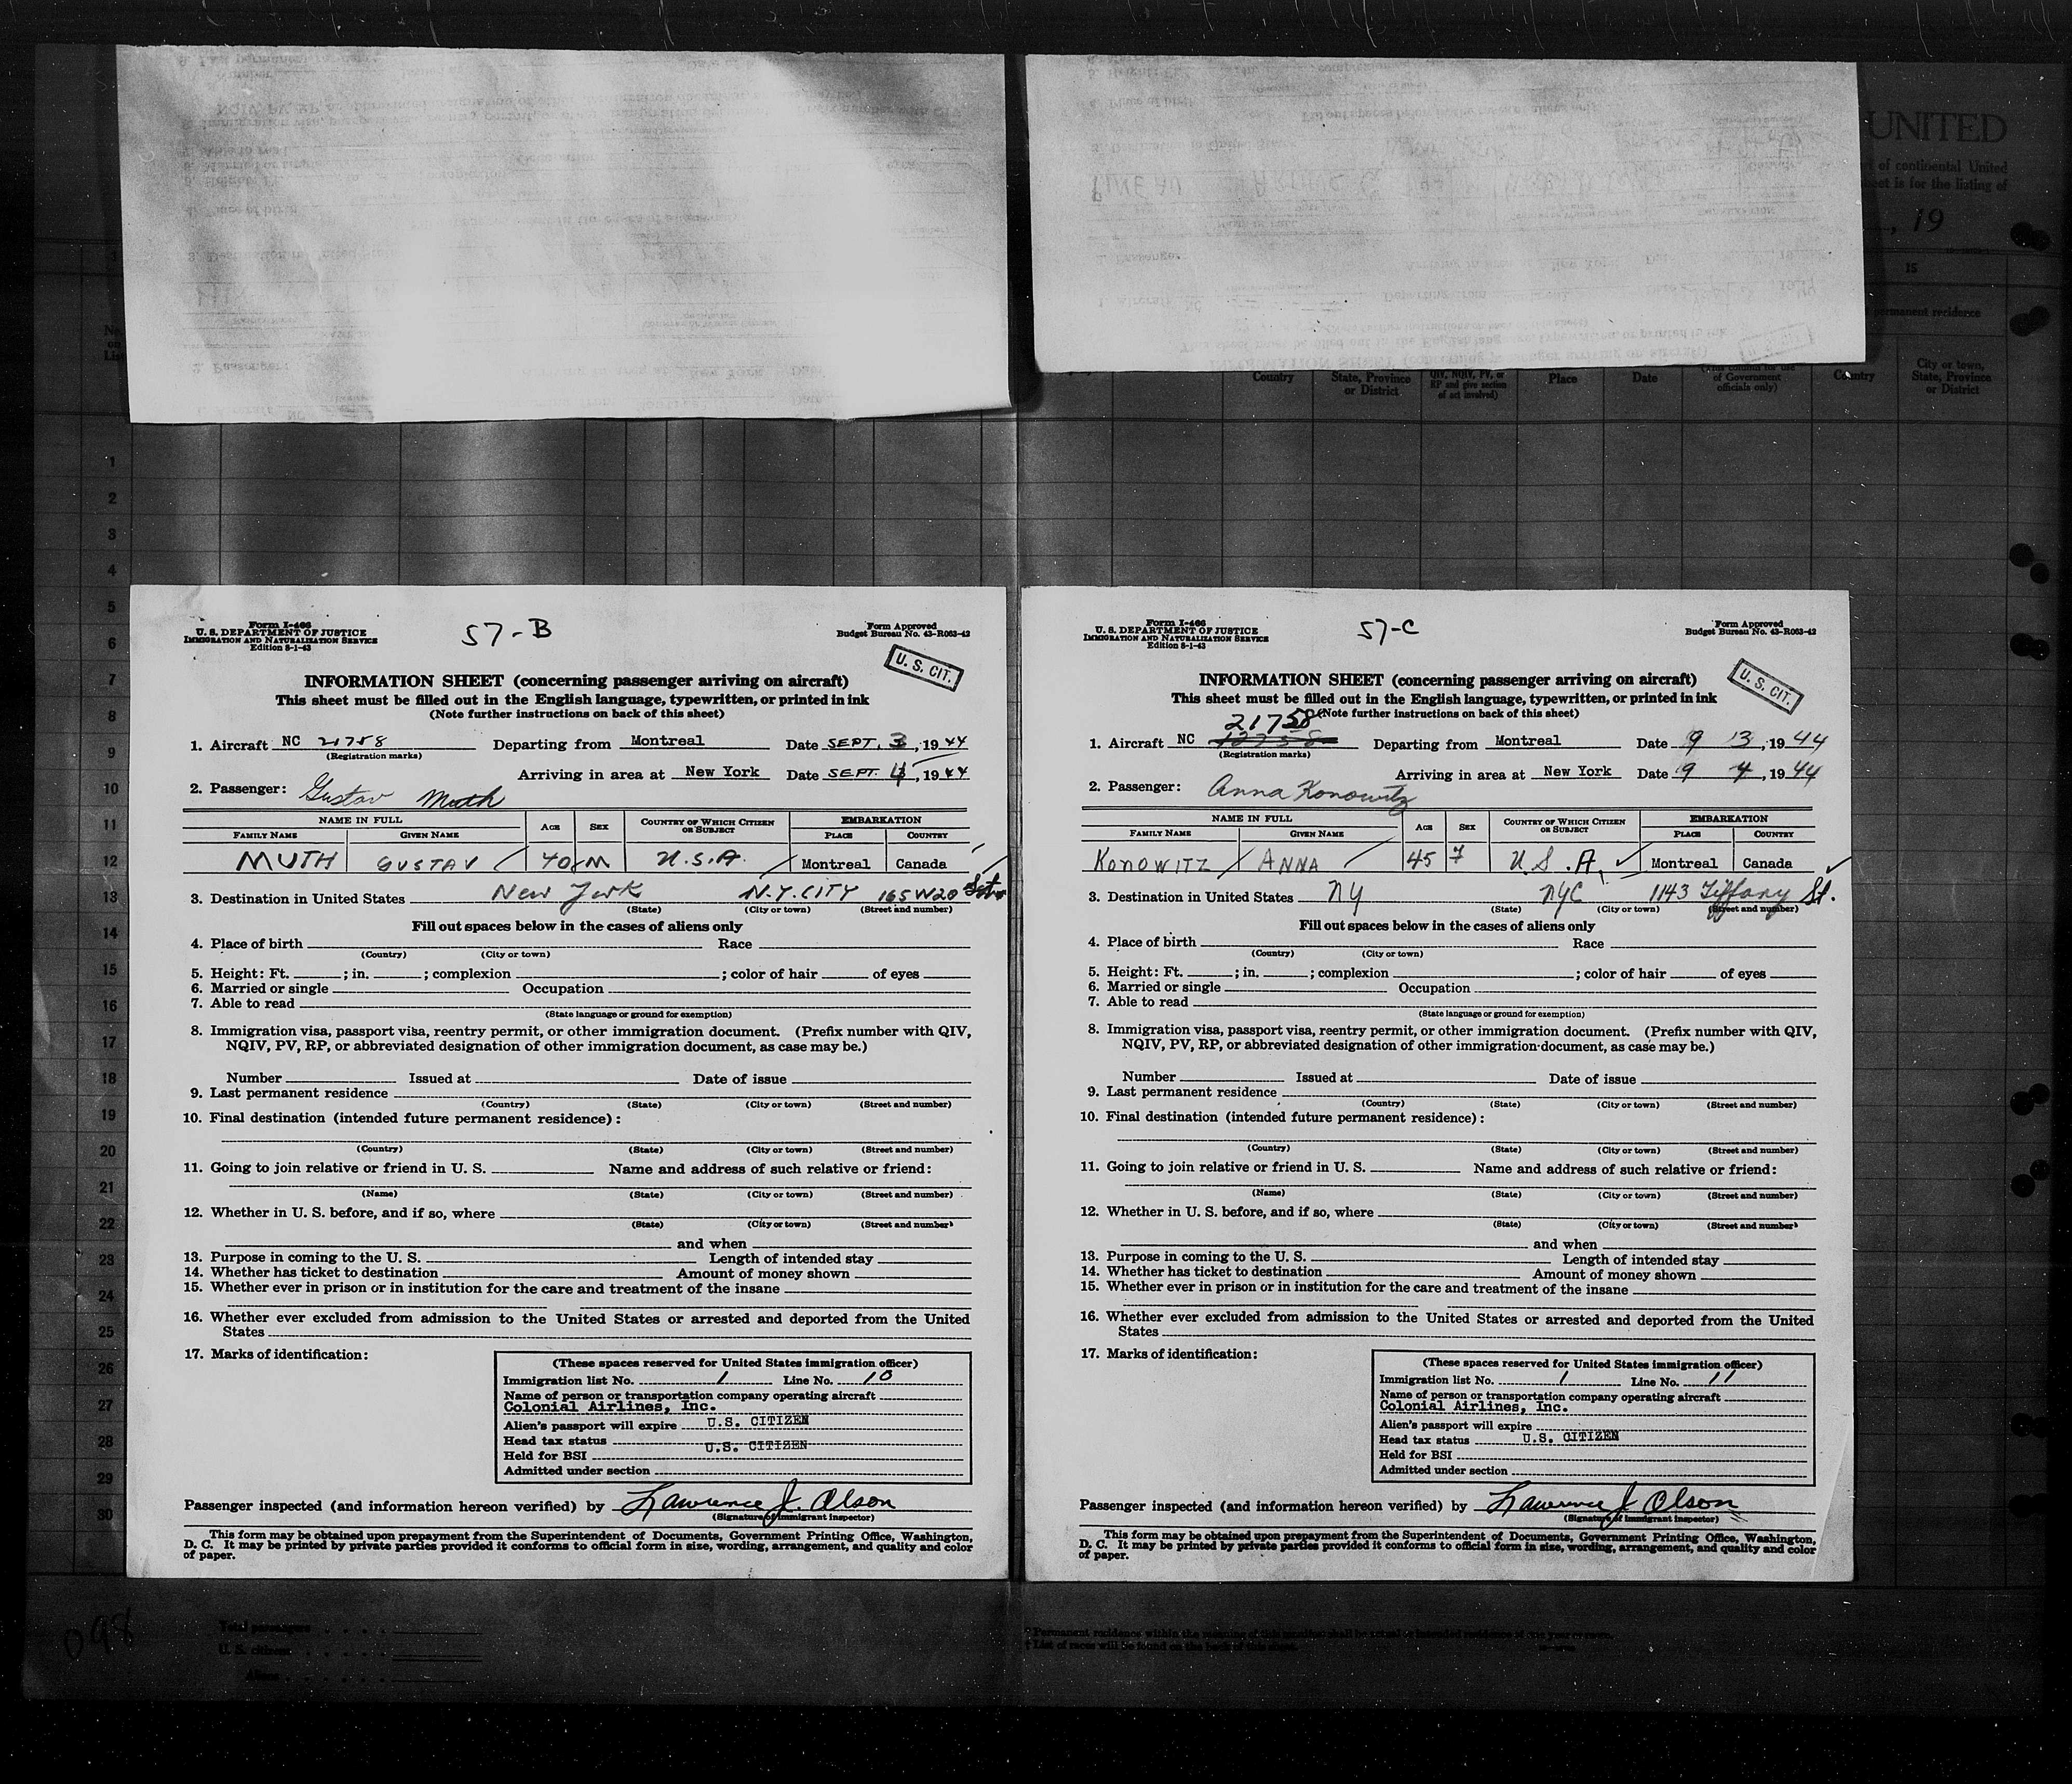 UNITED
of continental United
sheet is for the listing of
, 19
15
permanent residence
Country
State, Province
or District
QIV, NQIV, PV, or
RP and give section
of act involved)
Place
Date
of Government
officials only)
Country
City or town,
State, Province
or District
1
2
3
4
5
6
7
8
9
10
11
12
13
14
15
16
17
18
19
20
21
22
23
24
25
26
27
28
29
30
Form I-466
U. S. DEPARTMENT OF JUSTICE
IMMIGRATION AND NATURALIZATION SERVICE
Edition 8-1-43
57-B
Form Approved
Budget Bureau No. 43-R063-42
U. S. CIT.
INFORMATION SHEET (concerning passenger arriving on aircraft)
This sheet must be filled out in the English language, typewritten, or printed in ink
(Note further instructions on back of this sheet)
1. Aircraft NC 21758 Departing from Montreal Date SEPT. 3, 1944
(Registration marks)
Arriving in area at New York Date SEPT. 4, 1944
2. Passenger: Gustav Muth
NAME IN FULL AGE SEX COUNTRY OF WHICH CITIZEN OR SUBJECT EMBARKATION
FAMILY NAME GIVEN NAME PLACE COUNTRY
MUTH GUSTAV 40 M U.S.A. Montreal Canada
3. Destination in United States New York N.Y. CITY 165 W 20 St
(State) (City or town) (Street and number)
Fill out spaces below in the cases of aliens only
4. Place of birth Race
(Country) (City or town)
5. Height: Ft. ; in. ; complexion ; color of hair of eyes
6. Married or single Occupation
7. Able to read
(State language or ground for exemption)
8. Immigration visa, passport visa, reentry permit, or other immigration document. (Prefix number with QIV,
NQIV, PV, RP, or abbreviated designation of other immigration document, as case may be.)
Number Issued at Date of issue
9. Last permanent residence
(Country) (State) (City or town) (Street and number)
10. Final destination (intended future permanent residence):
(Country) (State) (City or town) (Street and number)
11. Going to join relative or friend in U. S. Name and address of such relative or friend:
(Name) (State) (City or town) (Street and number)
12. Whether in U. S. before, and if so, where
(State) (City or town) (Street and number)
and when
13. Purpose in coming to the U. S. Length of intended stay
14. Whether has ticket to destination Amount of money shown
15. Whether ever in prison or in institution for the care and treatment of the insane
16. Whether ever excluded from admission to the United States or arrested and deported from the United
States
17. Marks of identification:
(These spaces reserved for United States immigration officer)
Immigration list No. 1 Line No. 10
Name of person or transportation company operating aircraft
Colonial Airlines, Inc.
Alien's passport will expire U.S. CITIZEN
Head tax status U.S. CITIZEN
Held for BSI
Admitted under section
Passenger inspected (and information hereon verified) by Lawrence J. Olson
(Signature of immigrant inspector)
This form may be obtained upon prepayment from the Superintendent of Documents, Government Printing Office, Washington,
D. C. It may be printed by private parties provided it conforms to official form in size, wording, arrangement, and quality and color
of paper.
Form I-466
U. S. DEPARTMENT OF JUSTICE
IMMIGRATION AND NATURALIZATION SERVICE
Edition 8-1-43
57-C
Form Approved
Budget Bureau No. 43-R063-42
U. S. CIT.
INFORMATION SHEET (concerning passenger arriving on aircraft)
This sheet must be filled out in the English language, typewritten, or printed in ink
(Note further instructions on back of this sheet)
21758
1. Aircraft NC Departing from Montreal Date 9 3, 1944
(Registration marks)
Arriving in area at New York Date 9 4, 1944
2. Passenger: Anna Konowitz
NAME IN FULL AGE SEX COUNTRY OF WHICH CITIZEN OR SUBJECT EMBARKATION
FAMILY NAME GIVEN NAME PLACE COUNTRY
KONOWITZ ANNA 45 F U.S.A. Montreal Canada
3. Destination in United States NY NYC 1143 Tiffany St.
(State) (City or town) (Street and number)
Fill out spaces below in the cases of aliens only
4. Place of birth Race
(Country) (City or town)
5. Height: Ft. ; in. ; complexion ; color of hair of eyes
6. Married or single Occupation
7. Able to read
(State language or ground for exemption)
8. Immigration visa, passport visa, reentry permit, or other immigration document. (Prefix number with QIV,
NQIV, PV, RP, or abbreviated designation of other immigration document, as case may be.)
Number Issued at Date of issue
9. Last permanent residence
(Country) (State) (City or town) (Street and number)
10. Final destination (intended future permanent residence):
(Country) (State) (City or town) (Street and number)
11. Going to join relative or friend in U. S. Name and address of such relative or friend:
(Name) (State) (City or town) (Street and number)
12. Whether in U. S. before, and if so, where
(State) (City or town) (Street and number)
and when
13. Purpose in coming to the U. S. Length of intended stay
14. Whether has ticket to destination Amount of money shown
15. Whether ever in prison or in institution for the care and treatment of the insane
16. Whether ever excluded from admission to the United States or arrested and deported from the United
States
17. Marks of identification:
(These spaces reserved for United States immigration officer)
Immigration list No. 1 Line No. 11
Name of person or transportation company operating aircraft
Colonial Airlines, Inc.
Alien's passport will expire
Head tax status U.S. CITIZEN
Held for BSI
Admitted under section
Passenger inspected (and information hereon verified) by Lawrence J Olson
(Signature of immigrant inspector)
This form may be obtained upon prepayment from the Superintendent of Documents, Government Printing Office, Washington,
D. C. It may be printed by private parties provided it conforms to official form in size, wording, arrangement, and quality and color
of paper.
098
Total passengers
U. S. citizens
Aliens
* Permanent residence within the meaning of this manifest shall be actual or intended residence of one year or more.
† List of races will be found on the back of this sheet.